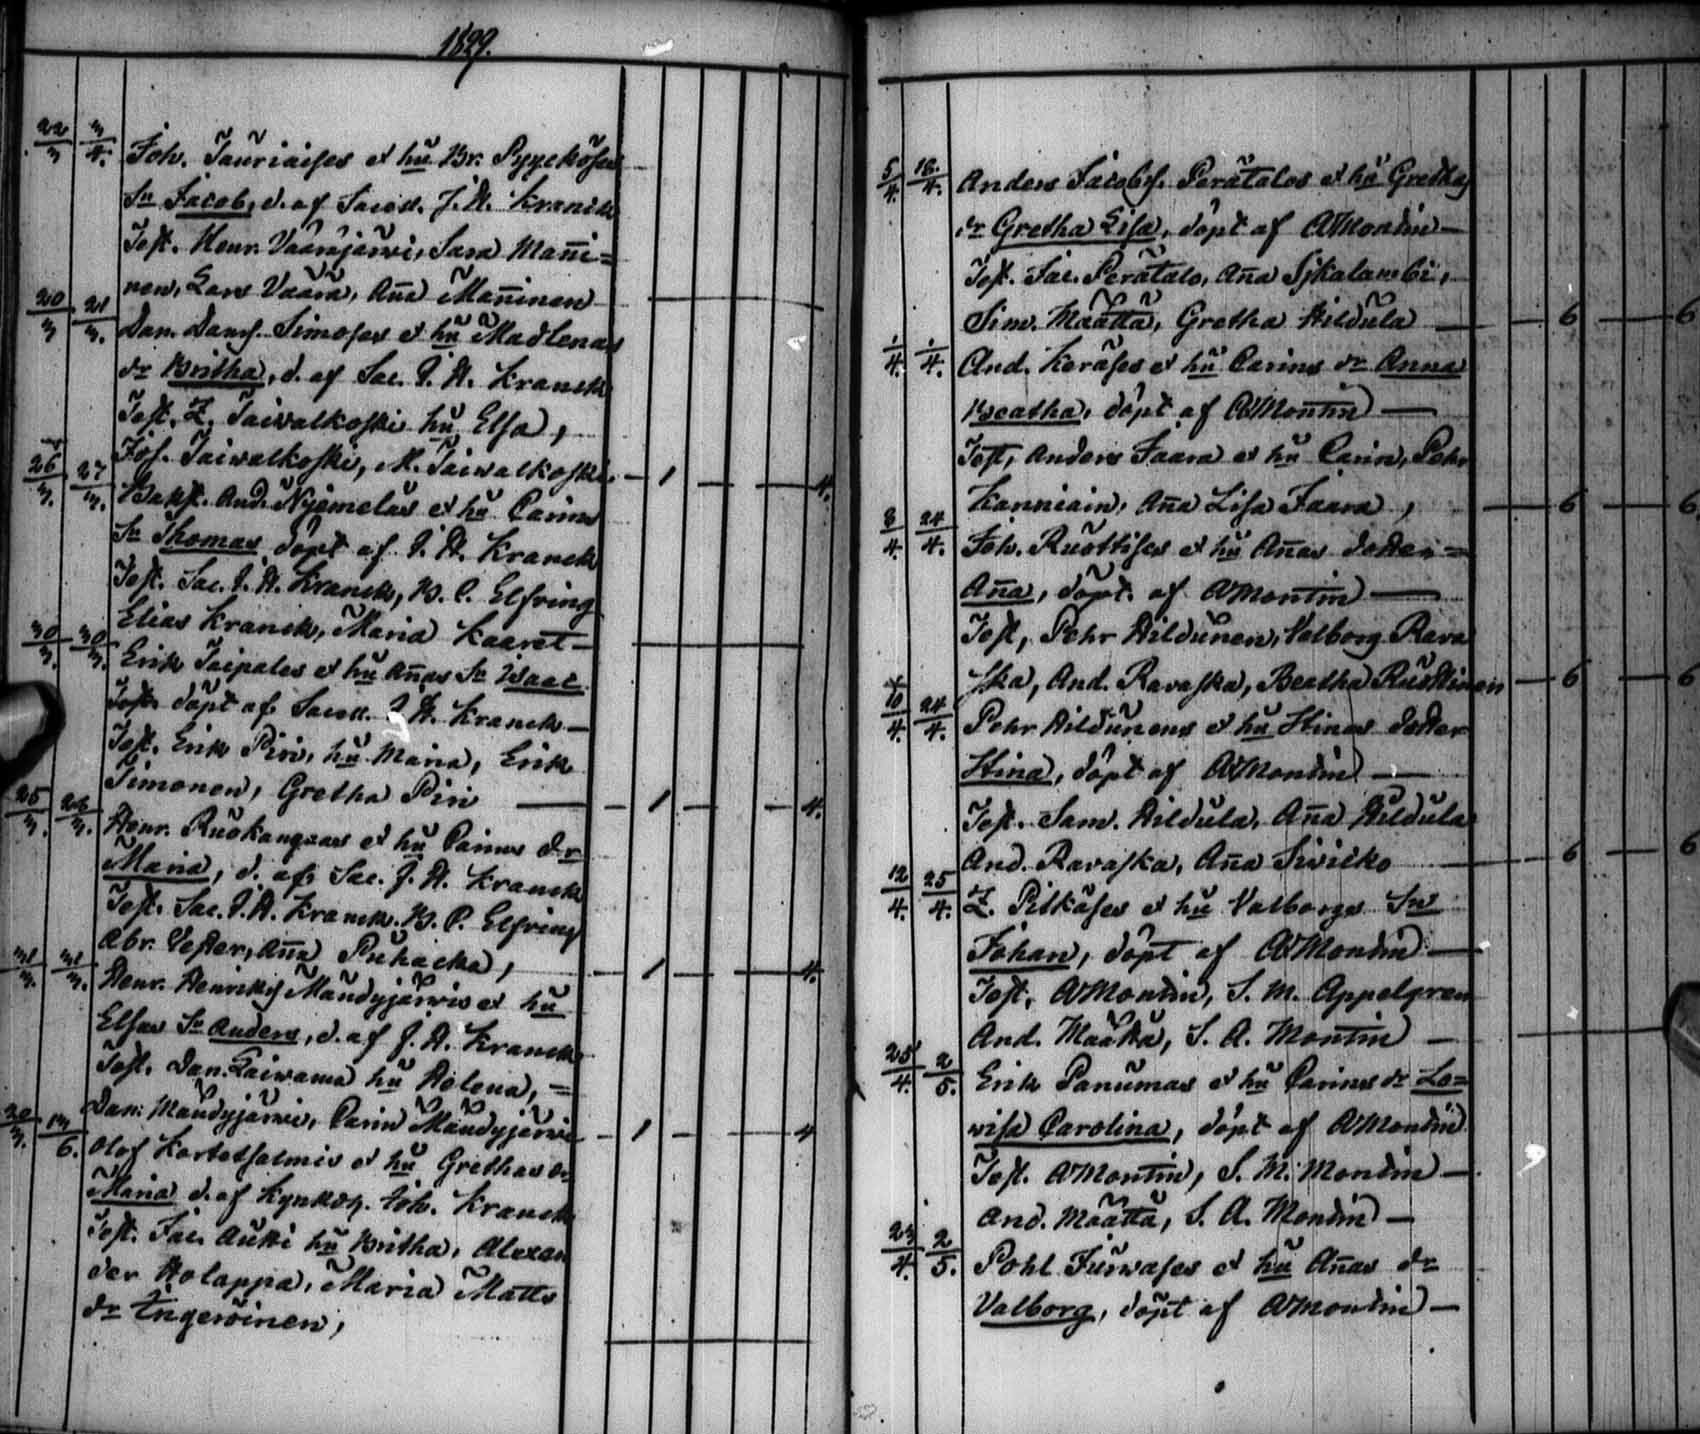 1829.
22/3 3/4. Joh. Jauriaises et hŭ Br. Pyyckösen
Sn Jacob, d. af Sacell. J. H. Kranck
Test. Henr. Väärijärvi, Sara Mañi=
nen, Lars Vaara, Aña Mañinen
20/3 21/3. Dan. Dansf. Simoses et hŭ Madlenas
dr Britha, d. af Sac. J. H. Kranck
Test. Z. Taivalkoski hŭ Elsa,
Jos. Taivalkoski, M. Taivalkoski. — 1 — — 4.
26/3. 27/3. And. Nyemeläs et hŭ Carins
Sn Thomas döpt af J. H. Kranck
Test. Sac. J. H. Kranck, B. C. Elfving
Elias Kranck, Maria Kaaret —
30/3. 30/3. Erik Taipales et hŭ Añas Sn Isaac
döpt af Sacell. J. H. Kranck —
Test. Erik Piri, hŭ Maria, Erik
Simonen, Gretha Piri — — 1 — — 4.
25/3. 26/3. Henr. Ruokangaas et hŭ Carins dr
Maria, d. af Sac. J. H. Kranck
Test. Sac. J. H. Kranck. B. C. Elfving
Abr. Vester, Aña Puhacka, — 1 — — 4.
31/3. 31/3. Henr. Henriksf Mändyjärvis et hŭ
Elsas Sn Anders, d. af J. H. Kranck
Test. Dan. Laivama hŭ Helena, =
Dan: Mändyjärvi, Carin Mändyjärvi — 1 — — 4
20/3. 13/6. Olof Kortetsalmis et hŭ Grethas dr
Maria d. af Kyrkoh. Joh. Kranck
Test. Jac. Autti hŭ Britha, Alexan
der Holappa, Maria Matts
dr Ingeröinen,
5/4. 18/4. Anders Jacobsf. Perätalos et hŭ Grethas
dr Gretha Lisa, döpt af AMontin —
Test. Jac. Perätalo, Aña Sjkalambi,
Sim. Määttä, Gretha Hildula — — 6 — 6
1/4. 1/4. And. Keräses et hŭ Carins dr Anna
Beatha, döpt af AMontin —
Test, Anders Jaara et hŭ Carin, Pehr
Kanniain, Aña Lisa Jaara, — 6 — 6
8/4. 24/4. Joh. Ruottises et hŭ Añas dotter =
Aña, döpt. af AMontin —
Test, Pehr Hildunen, Valborg Rava
ska, And. Ravaska, Beatha Ruottinen — 6 — 6
10/4. 24/4. Pehr Hildunens et hŭ Stinas dotter
Stina, döpt af AMontin —
Test. Sam. Hildula, Aña Hildula
And. Ravaska, Aña Sivikko — — 6 — 6
12/4. 25/4. Z. Pitkäses et hŭ Valborgs Sn
Johan, döpt af AMontin —
Test, AMontin, S. M. Appelgren
And. Määttä, S. A. Montin —
25/4. 2/5. Erik Panumas et hŭ Carins dr Lo=
visa Carolina, döpt af AMontin
Test. AMontin, S. M. Montin —
And. Määttä, S. A. Montin —
23/4. 2/5. Pohl Jurvases et hŭ Añas dr
Valborg, döpt af AMontin —